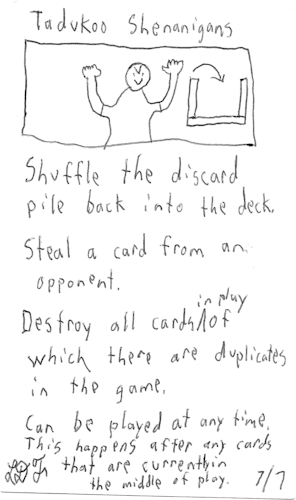 Tadukoo Shenanigans
Shuffle the discard
pile back into the deck.
Steal a card from an
opponent.
Destroy all cards in play of
which there are duplicates
in the game.
Can be played at any time.
This happens after any cards
that are currently in
the middle of play. 7/7